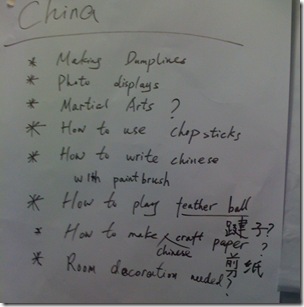 China
* Making Dumplines
* Photo displays
* Martial Arts ?
* How to use chopsticks
* How to write chinese
with paintbrush
* How to play feather ball
毽子?
* How to make chinese craft paper ?
剪纸
* Room decoration needed?